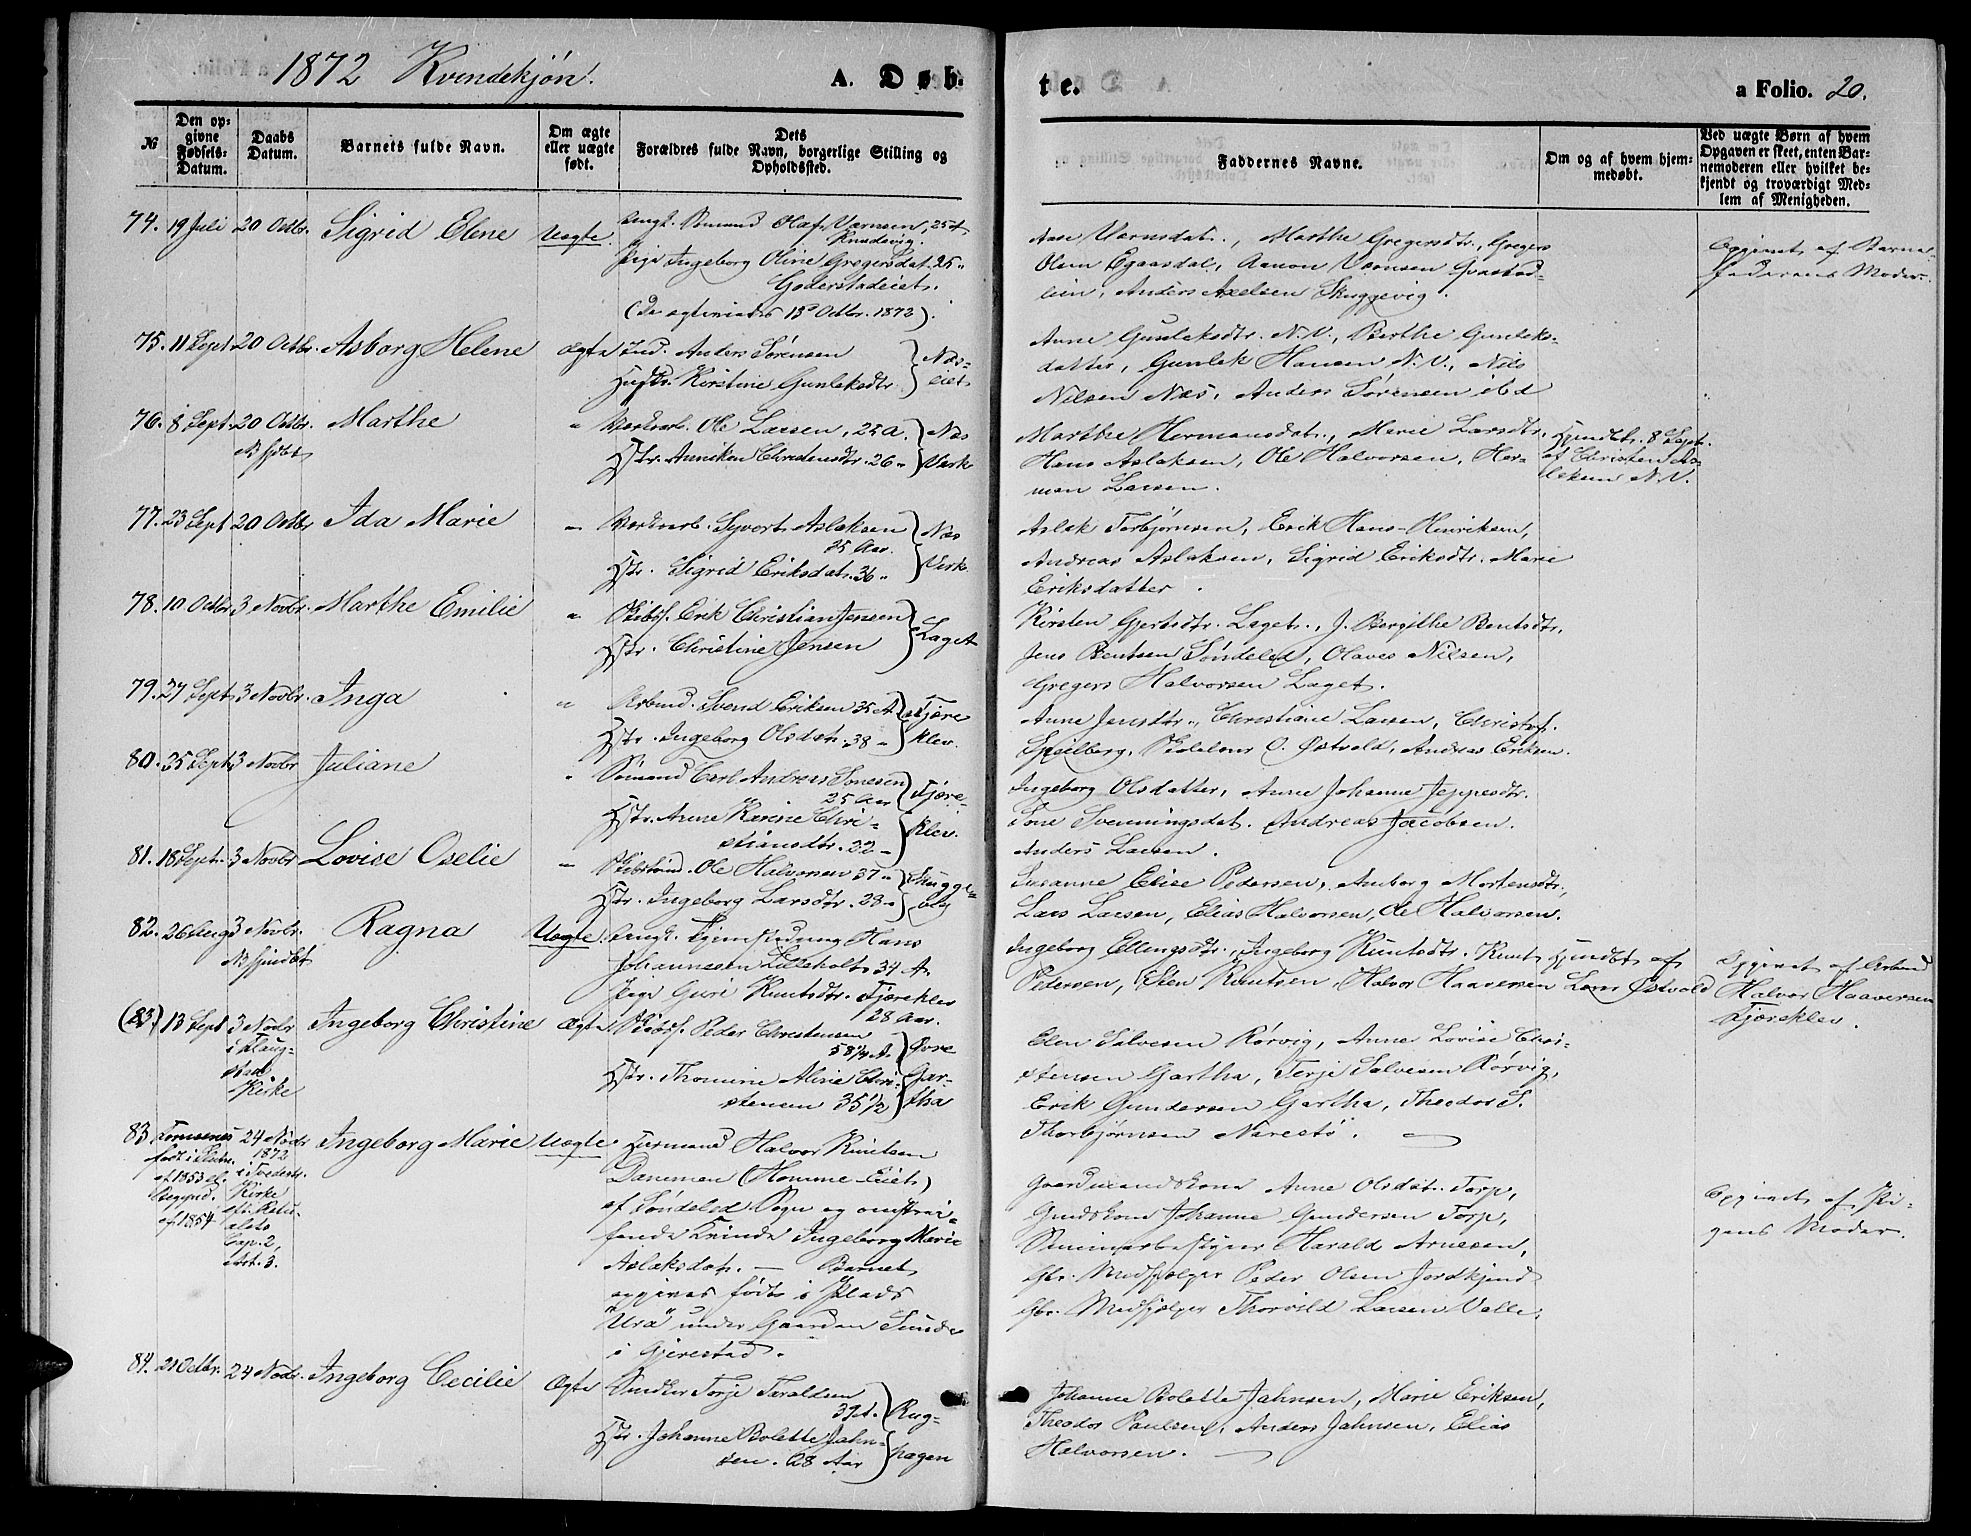 1872 Kvindekjøn. A. Døb-
te.
a Folio. 20.
№
Den op-
givne
Fødsels-
Datum.
Daabs
Datum.
Barnets fulde Navn.
Om ægte
eller uægte
født.
Dets
Forældres fulde Navn, borgerlige Stilling og
Opholdssted.
Faddernes Navne.
Om og af hvem hjem-
medøbt.
Ved uægte Børn af hvem
Opgaven er skeet, enten Bar-
nemoderen eller hvilket be-
kjendt og troværdigt Med-
lem af Menigheden.
74. 19 Juli 20 Octbr. Sigrid Elene Uægte. Ungk. Sømand Olaf Værnsen, 25 A
Knudsvig.
Pige Ingeborg Oline Gregersdat. 25 "
Goderstadeiet.
(De ægteviedes 18 Octbr. 1872).
AaseVærnsdat., Marthe Gregersdtr., Gregers
Olsen Egaasdal, Aanon Værnsen Qvastad-
eien, Anders Axelsen Skuggevig.
Opgivet af Barne-
faderens Moder.
75. 11 Sept 20 Octbr. Asborg Helene ægte Ind. Anders Sørensen
Hustr. Kirstine Gunleksdtr. Næs-
eiet
Anne Gunleksdtr. N.V., Berthe Gunleks-
datter, Gunlek Hansen N.V., Nils
Nilsen Næs, Anders Sørensen ibd
76. 8 Sept. 20 Octbr. Marthe " Værksarb. Ole Larsen, 22 A. Næs
Hjdbt
Hstr. Anniken Christensdtr. 26 " Værk
Marthe Hermansdat., Marie Larsdtr.
Hans Aslaksen, Ole Halvorsen, Her-
man Larsen.
Hjmdbt. 8 Sept.
af Christen As-
laksen N.V.
77. 23 Sept 20 Octbr Ida Marie " Værksarb. Syvert Aslaksen
35 Aar.
Hstr. Sigrid Eriksdatr. 36 " Næs
Værk.
Aslak Torbjørnsen, Erik Hans-Henriksen,
Andreas Aslaksen, Sigrid Eriksdtr. Marie
Eriksdatter.
78. 10 Octbr 3 Novbr. Marthe Emilie " Erik Christian Jensen
Hstr. Christine Jensen Laget
Kirsten Gjertsdtr. Laget, J. Bergithe Bentsdtr,
Jens Bentsen Søndeled, Olaves Nilsen,
Gregers Halvorsen Laget.
79. 27 Sept. 3 Novbr. Inga " Arbmd. Svend Eriksen 35 A
Hstr. Ingeborg Olsdatr. 38 " Fjære
klev.
Anne Jensdtr., Christiane Larsen, Christof.
Speilberg, O. Østvold, Andreas Eriksen.
80. 25 Sept. 3 Novbr Juliane " Sømand Carl Andreas Tonesen
25 Aar
Hstr. Anne Karine Chri-
stiansdtr. 22 " Fjære-
klev.
Ingeborg Olsdatter, Anne Johanne Jeppesdtr.
Tone Svenningsdat. Andreas Jacobsen.
Anders Larsen.
81. 18 Septr. 3 Novbr Lovise Oselie " Ole Halvorsen 37 "
Hstr. Ingeborg Larsdtr. 28 " Skugge-
vig
Susanne Elise Pedersen, Anborg Mortensdtr,
Lars Larsen, Elias Halvorsen, Ole Halvorsen.
82. 26 Aug 3 Novbr. Ragna Uægte. Ungk. Hans
Hjmdbt
Johannesen Lilleholt 34 A.
Pige Guri Knutsdtr. Fjæreklev
28 Aar.
Ingeborg Ellingsdtr., Ingeborg Knutsdtr. Knut
Petersen, Esten Knutsen, Halvor Haaversen
Hjmdbt af
Lars Østvold
Opgivet af Arbmd
Halvor Haaversen
Fjæreklev.
(83) 13 Sept 3 Novbr Ingeborg Christine Ægte Peder Christensen
i Flaug-
stad
Kirke
58 1/4 A.
Hstr. Thomine Aline Chri-
stensen 35 1/2 Øvre
Gar-
tha
Elen Salvesen Rørvig, Anne Lovise Chri-
stensen Gartha, Terje Salvesen Rørvig,
Erik Gundersen Gartha, Theodor S.
Thorbjørnsen Narestø.
83. 24 Novbr Ingeborg Marie Uægte
født i Slutn.
af 1853 el.
Begynd.
af 1854
1872
i Tvedestr.
Kirke
Cap. 2,
Art. 3.
Husmand Halvor Knutsen
Danemen (Homme-Eiet)
af Søndeled Sogn og omstrei-
fende Kvinde Ingeborg Marie
Aslaksdatr. — Barnet
opgives født i Plads
"Ura" under Gaarden Sunde
i Gjerestad.
Gaardmandskone Anne Olsdat. Torp,
Johanne Gundersen Torp,
Harald Arnesen,
Gbr. Medhjælper Peder Olsen Jordkjend
Gbr. Medhjælper Thorvild Larsen Valle.
Opgivet af Pi-
gens Moder.
84. 21 Octbr. 24 Novbr. Ingeborg Cecilie Ægte Smeden Terje Taraldsen
39 A.
Hstr. Johanne Bolette Jahn-
sen. 28 Aar Rug-
hagen
Johanne Bolette Jahnsen, Marie Eriksen,
Theodor Paulsen, Anders Jahnsen, Elias
Halvorsen.